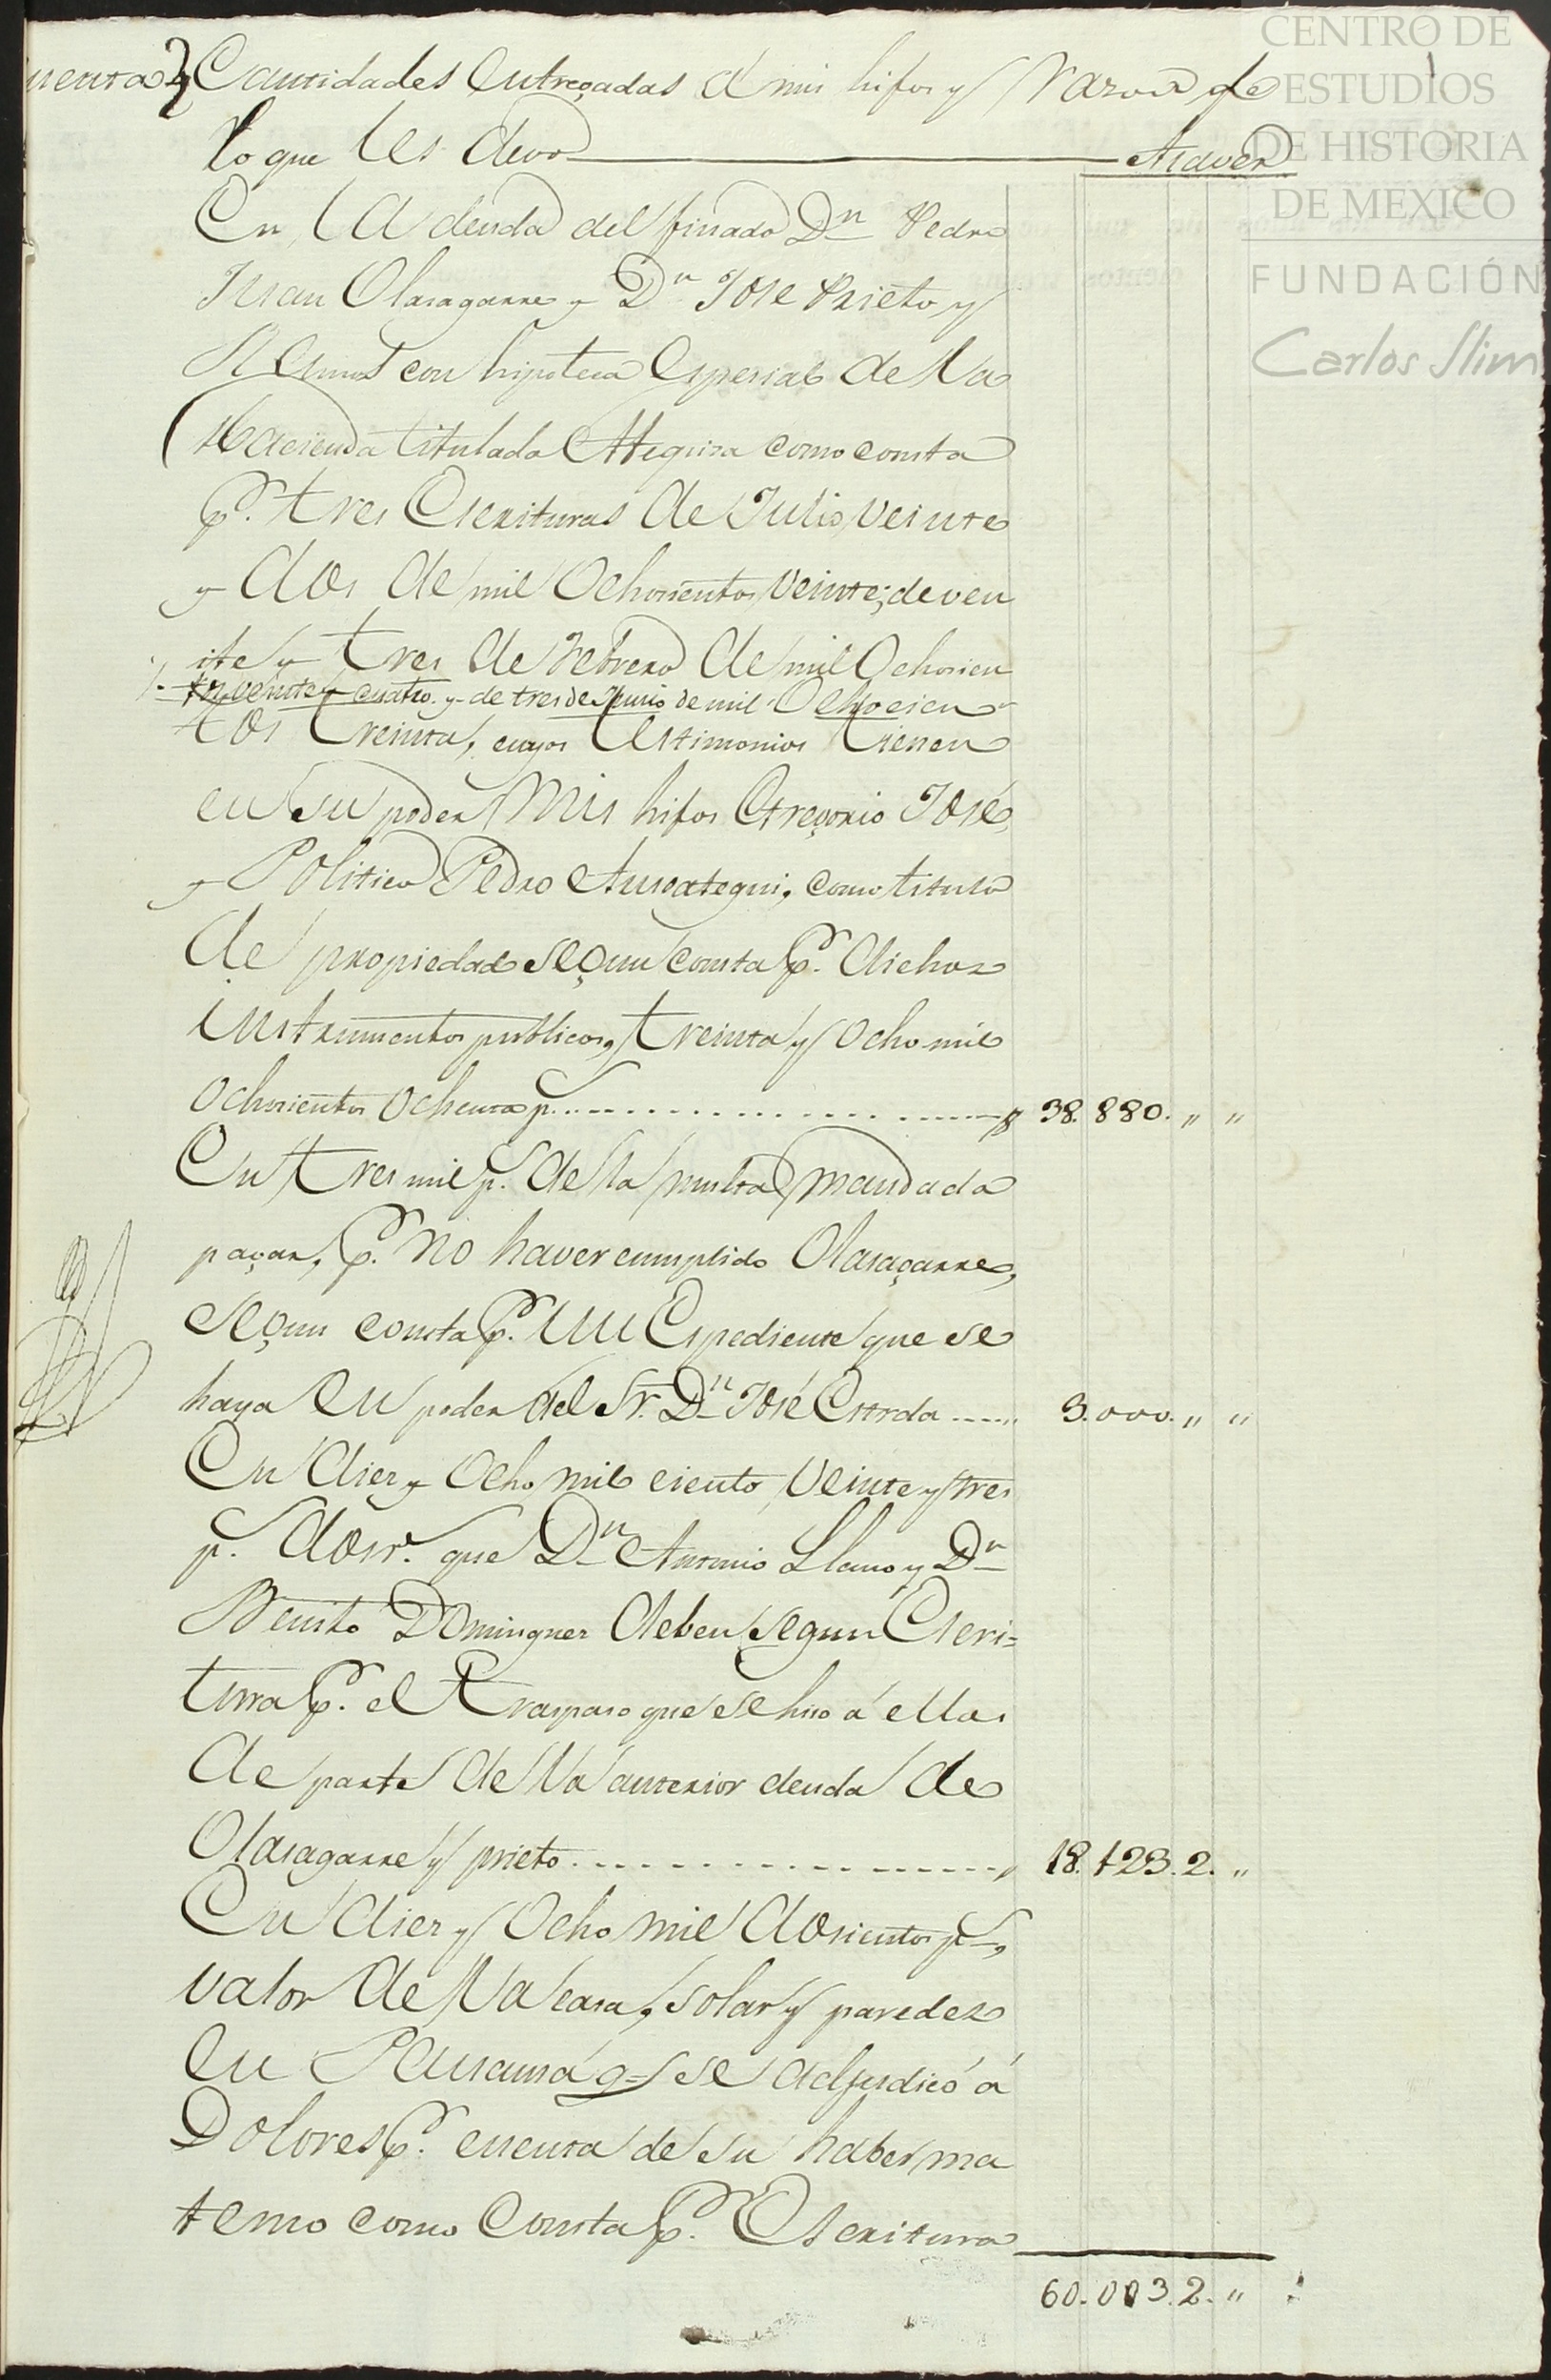 uenta de Cantidades Entregadas a mis hijos y Razon de
lo que les devo Asaver
En la deuda del finado Dn Pedro
Juan Olasagarre y Dn Jose Prieto y
Ramos con hipoteca Especial de la
Hacienda titulada Atequisa como consta
pr. tres Escrituras de Julio veinte
y dos de mil Ochosientos veinte; de ven
ite y tres de Febrero de mil Ochosien
tos veinte y cuatro. y de tres de Junio de mil Ochocien
tos treinta, cuyos testimonios tienen
en su poder Mis hijos Gregorio José,
y Politico Pedro Ansoategui, como titulo
de propiedad segun consta pr. dichos
instrumentos publicos, treinta y ocho mil
ochosientos ochenta ps. 38.880. „ „
En tres mil ps. de la multa mandada
pagar, pr. no haver cumplido Olasagarre,
segun consta pr. un Espediente que se
haya en poder del Sr. Dn José Estrda 3.000. „ „
En dies y ocho mil ciento veinte y tres
ps. dos rs. que Dn Antonio Llano y Dn
Benito Domingues deben segun Escri=
tura pr. el traspaso que se hiso á ellos
de parte de la anterior deuda de
Olasagarre y prieto 18.123.2. „
En dies y ocho mil dosientos ps,
valor de la casa, solar y paredes
en Panamá q= se adjudicó á
Dolores pr. cuenta de su haber ma
terno como consta pr. Escritura
60.003.2. „
CENTRO DE
ESTUDIOS
DE HISTORIA
DE MEXICO
FUNDACIÓN
Carlos Slim